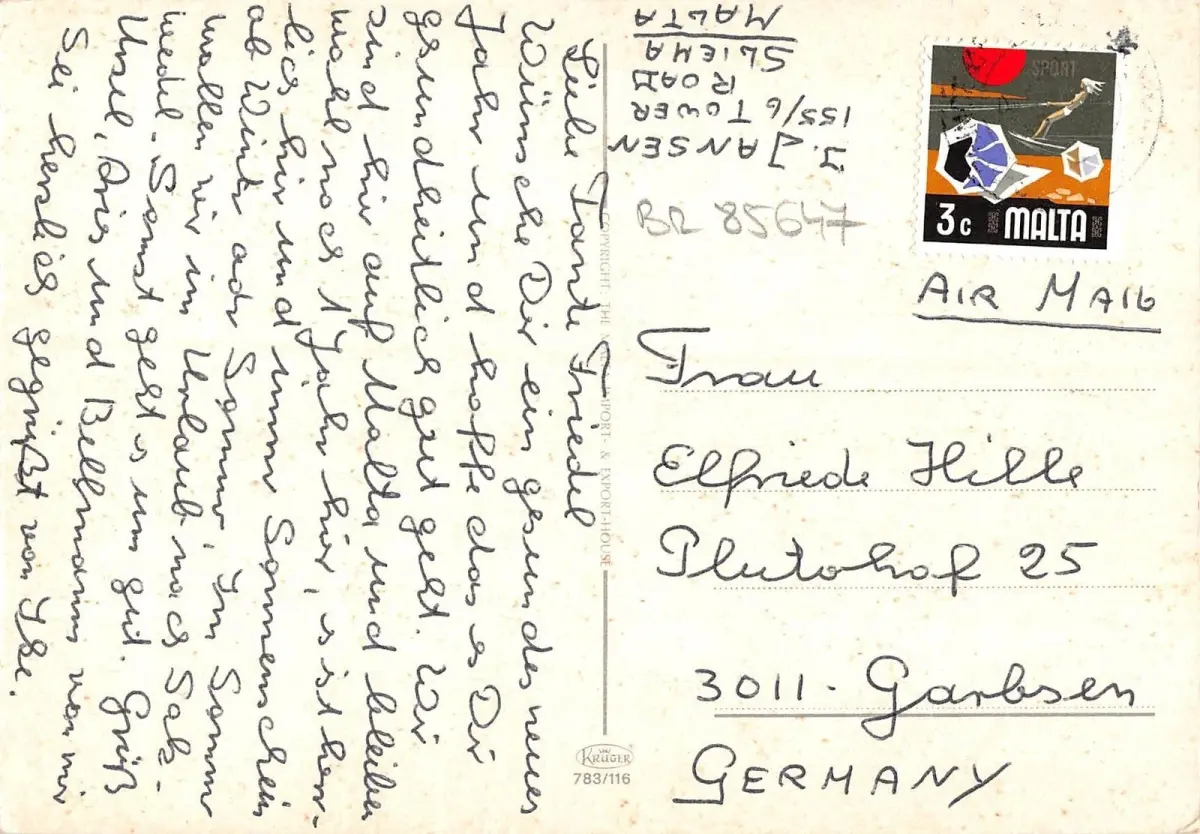 Liebe Tante Friedel
Wünsche Dir ein gesundes neues
Jahr und hoffe das es Dir
gesundheitlich gut geht. Wir
sind hir auf Malta und bleiben
wohl noch 1 Jahr hir, s ist herr-
lich hir und immer Sonnenschein
ob Winter odr Sommer, Im Sommer
wollen wir im Urlaub nach
wedel. Sonst geht s uns gut. Grüß
Ursel, und Bellmann von mir
Sei herzlich gegrüßt von
J. JANSEN
155/6 TOWER
ROAD
SLIEMA
MALTA
BR 85647
SPORT
3c MALTA
AIR MAIL
Frau
Elfriede Hille
Plutohof 25
3011 - Garbsen
GERMANY
COPYRIGHT: THE IMPORT- & EXPORT-HOUSE
KRÜGER
783/116